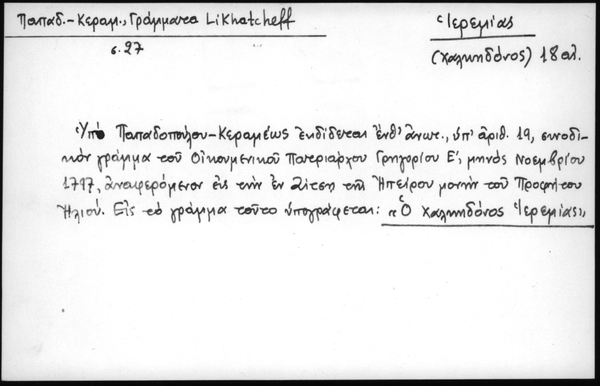 Παπαδ.-Κεραμ., Γράμματα Likhatcheff
σ. 27
Ἱερεμίας
(Χαλκηδόνος) 18 αἰ.
Ὑπὸ Παπαδοπούλου-Κεραμέως ἐκδίδεται ἔνθ' ἄνωτ., ὑπ' ἀριθ. 19, συνοδι-
κὸν γράμμα τοῦ Οἰκουμενικοῦ Πατριάρχου Γρηγορίου Ε', μηνὸς Νοεμβρίου
1797, ἀναφερόμενον εἰς τὴν ἐν τῆς Ἠπείρου μονὴν τοῦ Προφήτου
Ἠλιού. Εἰς τὸ γράμμα τοῦτο ὑπογράφεται: "Ὁ Χαλκηδόνος Ἱερεμίας"